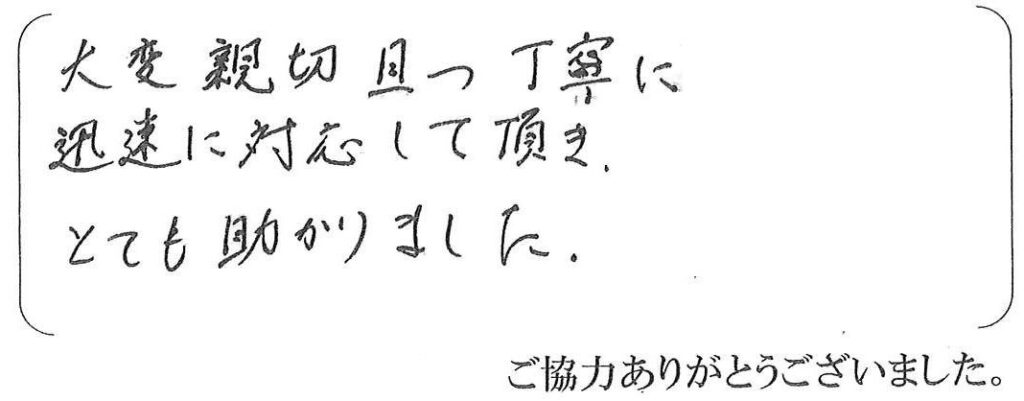 大変親切且つ丁寧に
迅速に対応して頂き.
とても助かりました.
ご協力ありがとうございました。